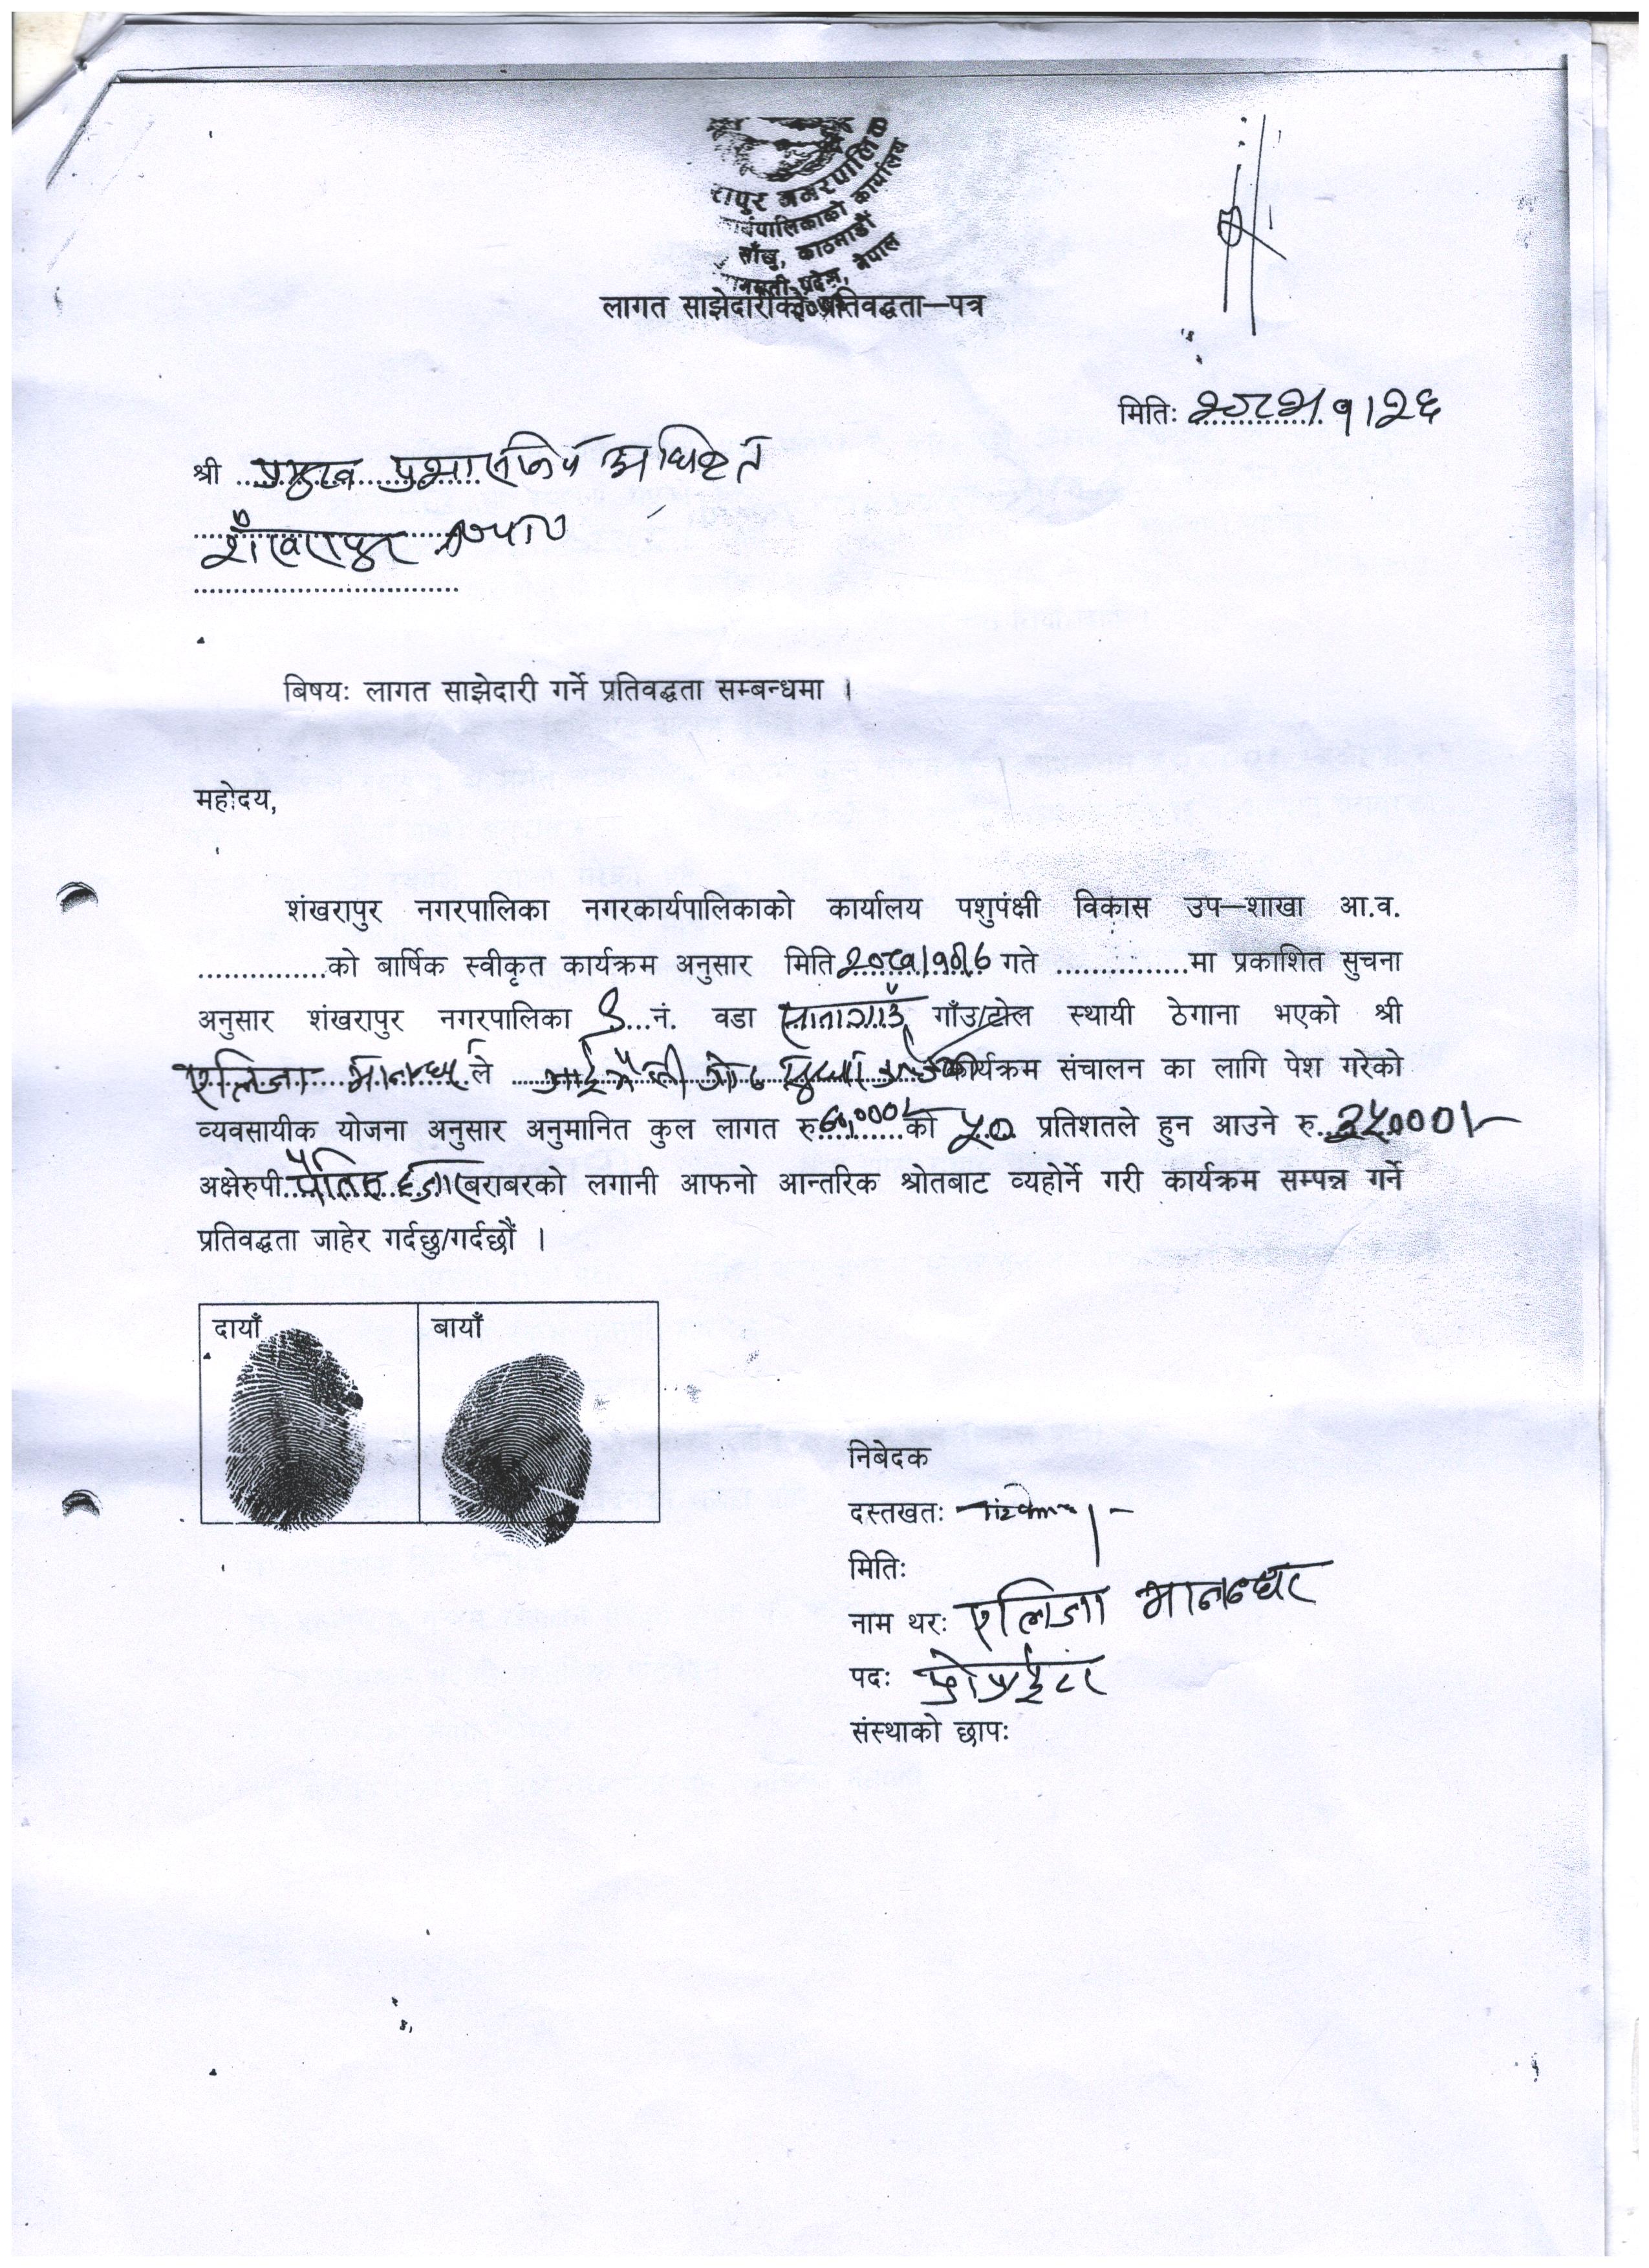 रापुर नगरपालिका
कार्यपालिकाको कार्यालय
साँखु, काठमाडौं
बागमती प्रदेश, नेपाल
लागत साझेदारीको प्रतिवद्धता—पत्र
मितिः २०८२।१।२६
श्री प्रमुख प्रशासकिय अधिकृत
शंखरापुर न०पा०
बिषयः लागत साझेदारी गर्ने प्रतिवद्धता सम्बन्धमा ।
महोदय,
शंखरापुर नगरपालिका नगरकार्यपालिकाको कार्यालय पशुपंक्षी विकास उप—शाखा आ.व.
...............को बार्षिक स्वीकृत कार्यक्रम अनुसार मिति गते ...............मा प्रकाशित सुचना
अनुसार शंखरापुर नगरपालिका ९ नं. वडा सानागाउँ गाँउ/टोल स्थायी ठेगाना भएको श्री
एलिजा मानन्धर ले कार्यक्रम संचालन का लागि पेश गरेको
व्यवसायीक योजना अनुसार अनुमानित कुल लागत रु ७०,०००/- को ५० प्रतिशतले हुन आउने रु. ३५०००।-
अक्षेरुपी पैंतिस हजार बराबरको लगानी आफनो आन्तरिक श्रोतबाट व्यहोर्ने गरी कार्यक्रम सम्पन्न गर्ने
प्रतिवद्धता जाहेर गर्दछु/गर्दछौं ।
दायाँ बायाँ
निबेदक
दस्तखतः
मितिः
नाम थरः एलिजा मानन्धर
पदः प्रोप्राईटर
संस्थाको छापः